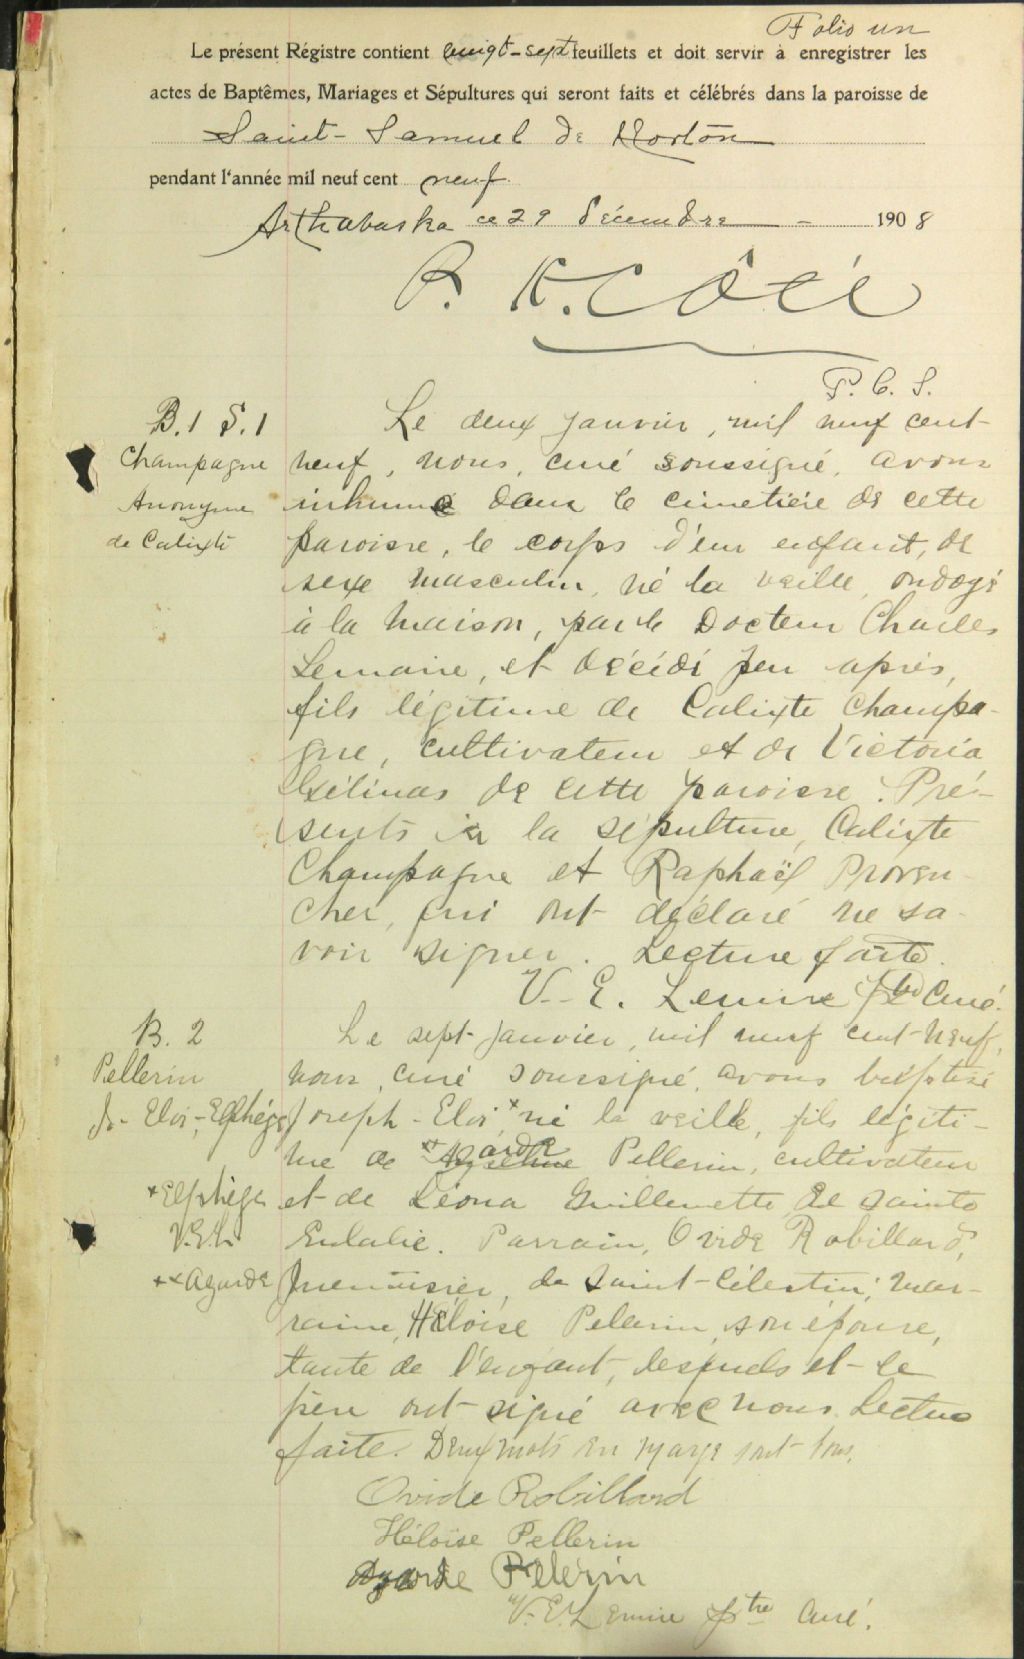 Folio un
Le présent Régistre contient vingt-sept feuillets et doit servir à enregistrer les
actes de Baptêmes, Mariages et Sépultures qui seront faits et célébrés dans la paroisse de
Saint-Samuel de Horton
pendant l'année mil neuf cent neuf.
Arthabaska ce 29 Décembre 1908
P. C. S.
B.1 S.1
Champagne
Anonyme
de Calixte
Le deux janvier, mil neuf cent-
neuf, nous, curé soussigné, avons
inhumé dans le cimetière de cette
paroisse, le corps d'un enfant, de
sexe masculin, né la veille, ondoyé
à la maison, par le Docteur Charles
Lemaire, et décédé peu après,
fils légitime de Calixte Champa-
gne, cultivateur et de Victoria
Gélinas de cette paroisse. Pré-
sents à la sépulture, Calixte
Champagne et Raphaël Proven-
cher, qui ont déclaré ne sa-
voir signer. Lecture faite.
V.-E. Lemire Ptre Curé.
B. 2
Pellerin
Js-Eloi-Elphège
x Elphège
V.E.L.
xx Agarde
Le sept janvier, mil neuf cent-neuf,
nous, curé soussigné, avons baptisé
Joseph-Eloi x né la veille, fils légiti-
me de xx Pellerin, cultivateur
et de Léona Guillemette de Sainte
Eulalie. Parrain, Ovide Robillard,
menuisier, de Saint-Célestin; mar-
raine, Héloïse Pellerin, son épouse,
tante de l'enfant, lesquels et le
père ont signé avec nous. Lecture
faite. Deux mots en marge sont bons.
Ovide Robillard
Héloïse Pellerin
Agarde Pelerin
V.E. Lemire ptre Curé.